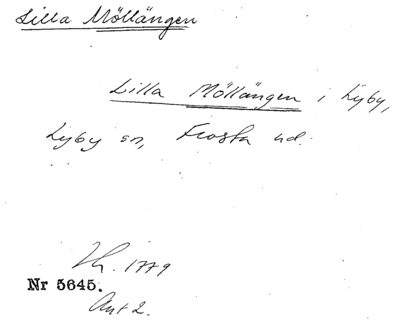 Lilla Möllängen
Lilla Möllängen i Lyby,
Lyby sn, Frosta hd.
1779
Nr 5645.
Art 2.